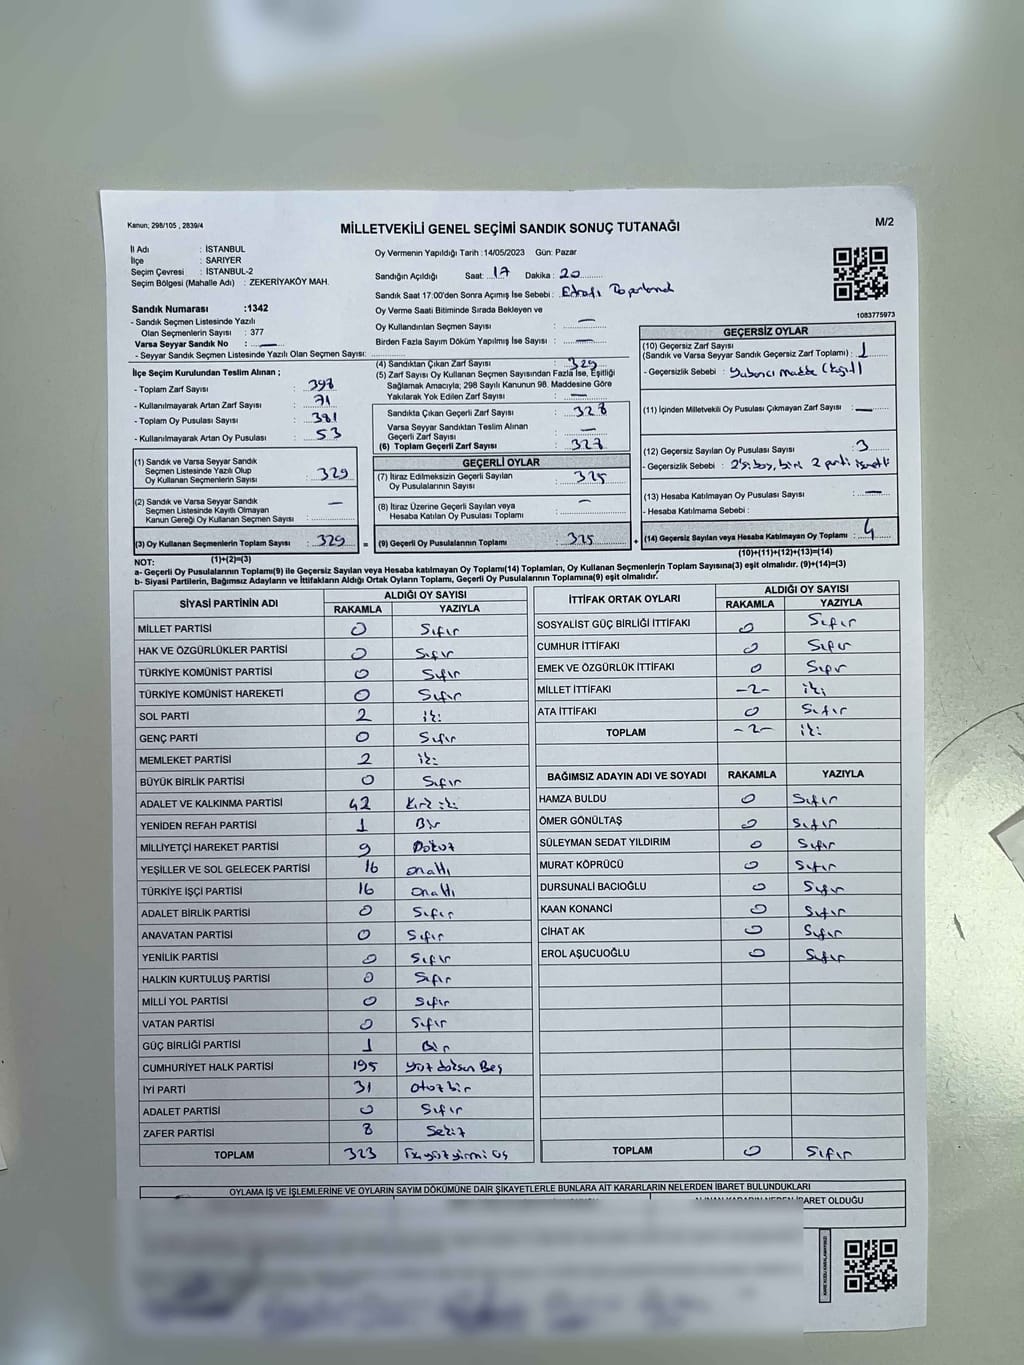 Kanun; 298/105 , 2839/4
MİLLETVEKİLİ GENEL SEÇİMİ SANDIK SONUÇ TUTANAĞI
M/2
İl Adı : İSTANBUL
İlçe : SARIYER
Seçim Çevresi : İSTANBUL-2
Seçim Bölgesi (Mahalle Adı) : ZEKERİYAKÖY MAH.
Sandık Numarası :1342
- Sandık Seçmen Listesinde Yazılı
Olan Seçmenlerin Sayısı : 377
Varsa Seyyar Sandık No : —
- Seyyar Sandık Seçmen Listesinde Yazılı Olan Seçmen Sayısı:
Oy Vermenin Yapıldığı Tarih :14/05/2023 Gün: Pazar
Sandığın Açıldığı Saat: 17 Dakika : 20
Sandık Saat 17:00'den Sonra Açımış İse Sebebi :
Oy Verme Saati Bitiminde Sırada Bekleyen ve
Oy Kullandırılan Seçmen Sayısı : —
Birden Fazla Sayım Döküm Yapılmış İse Sayısı : —
1083775973
İlçe Seçim Kurulundan Teslim Alınan ;
- Toplam Zarf Sayısı : 398
- Kullanılmayarak Artan Zarf Sayısı : 71
- Toplam Oy Pusulası Sayısı : 381
- Kullanılmayarak Artan Oy Pusulası : 53
(1) Sandık ve Varsa Seyyar Sandık
Seçmen Listesinde Yazılı Olup
Oy Kullanan Seçmenlerin Sayısı : 329
(2) Sandık ve Varsa Seyyar Sandık
Seçmen Listesinde Kayıtlı Olmayan
Kanun Gereği Oy Kullanan Seçmen Sayısı : —
(3) Oy Kullanan Seçmenlerin Toplam Sayısı : 329
(4) Sandıktan Çıkan Zarf Sayısı : 329
(5) Zarf Sayısı Oy Kullanan Seçmen Sayısından Fazla İse, Eşitliği
Sağlamak Amacıyla; 298 Sayılı Kanunun 98. Maddesine Göre
Yakılarak Yok Edilen Zarf Sayısı : —
Sandıkta Çıkan Geçerli Zarf Sayısı : 328
Varsa Seyyar Sandıktan Teslim Alınan
Geçerli Zarf Sayısı : —
(6) Toplam Geçerli Zarf Sayısı : 328
GEÇERLİ OYLAR
(7) İtiraz Edilmeksizin Geçerli Sayılan
Oy Pusulalarının Sayısı : 325
(8) İtiraz Üzerine Geçerli Sayılan veya
Hesaba Katılan Oy Pusulası Toplamı : —
= (9) Geçerli Oy Pusulalarının Toplamı : 325
GEÇERSİZ OYLAR
(10) Geçersiz Zarf Sayısı
(Sandık ve Varsa Seyyar Sandık Geçersiz Zarf Toplamı) : 1
- Geçersizlik Sebebi : Yabancı madde (kağıt)
(11) İçinden Milletvekili Oy Pusulası Çıkmayan Zarf Sayısı : —
(12) Geçersiz Sayılan Oy Pusulası Sayısı : 3
- Geçersizlik Sebebi : 2'si boş, biri 2 parti işaretli
(13) Hesaba Katılmayan Oy Pusulası Sayısı : —
- Hesaba Katılmama Sebebi :
+ (14) Geçersiz Sayılan veya Hesaba Katılmayan Oy Toplamı : 4
NOT: (1)+(2)=(3) (10)+(11)+(12)+(13)=(14)
a- Geçerli Oy Pusulalarının Toplamı(9) ile Geçersiz Sayılan veya Hesaba katılmayan Oy Toplamı(14) Toplamları, Oy Kullanan Seçmenlerin Toplam Sayısına(3) eşit olmalıdır. (9)+(14)=(3)
b- Siyasi Partilerin, Bağımsız Adayların ve İttifakların Aldığı Ortak Oyların Toplamı, Geçerli Oy Pusulalarının Toplamına(9) eşit olmalıdır.
SİYASİ PARTİNİN ADI ALDIĞI OY SAYISI
RAKAMLA YAZIYLA
MİLLET PARTİSİ 0 Sıfır
HAK VE ÖZGÜRLÜKLER PARTİSİ 0 Sıfır
TÜRKİYE KOMÜNİST PARTİSİ 0 Sıfır
TÜRKİYE KOMÜNİST HAREKETİ 0 Sıfır
SOL PARTİ 2 iki
GENÇ PARTİ 0 Sıfır
MEMLEKET PARTİSİ 2 iki
BÜYÜK BİRLİK PARTİSİ 0 Sıfır
ADALET VE KALKINMA PARTİSİ 42 Kırk iki
YENİDEN REFAH PARTİSİ 1 Bir
MİLLİYETÇİ HAREKET PARTİSİ 9 Dokuz
YEŞİLLER VE SOL GELECEK PARTİSİ 16 onaltı
TÜRKİYE İŞÇİ PARTİSİ 16 onaltı
ADALET BİRLİK PARTİSİ 0 Sıfır
ANAVATAN PARTİSİ 0 Sıfır
YENİLİK PARTİSİ 0 Sıfır
HALKIN KURTULUŞ PARTİSİ 0 Sıfır
MİLLİ YOL PARTİSİ 0 Sıfır
VATAN PARTİSİ 0 Sıfır
GÜÇ BİRLİĞİ PARTİSİ 1 Bir
CUMHURİYET HALK PARTİSİ 195 yüz doksan Beş
İYİ PARTİ 31 otuz bir
ADALET PARTİSİ 0 Sıfır
ZAFER PARTİSİ 8 Sekiz
TOPLAM 323 üçyüz yirmi üç
İTTİFAK ORTAK OYLARI ALDIĞI OY SAYISI
RAKAMLA YAZIYLA
SOSYALİST GÜÇ BİRLİĞİ İTTİFAKI 0 Sıfır
CUMHUR İTTİFAKI 0 Sıfır
EMEK VE ÖZGÜRLÜK İTTİFAKI 0 Sıfır
MİLLET İTTİFAKI -2- iki
ATA İTTİFAKI 0 Sıfır
TOPLAM -2- iki
BAĞIMSIZ ADAYIN ADI VE SOYADI RAKAMLA YAZIYLA
HAMZA BULDU 0 Sıfır
ÖMER GÖNÜLTAŞ 0 Sıfır
SÜLEYMAN SEDAT YILDIRIM 0 Sıfır
MURAT KÖPRÜCÜ 0 Sıfır
DURSUNALİ BACIOĞLU 0 Sıfır
KAAN KONANCİ 0 Sıfır
CİHAT AK 0 Sıfır
EROL AŞUCUOĞLU 0 Sıfır
TOPLAM 0 Sıfır
OYLAMA İŞ VE İŞLEMLERİNE VE OYLARIN SAYIM DÖKÜMÜNE DAİR ŞİKAYETLERLE BUNLARA AİT KARARLARIN NELERDEN İBARET BULUNDUKLARI
ALINAN KARARIN NEDEN İBARET OLDUĞU